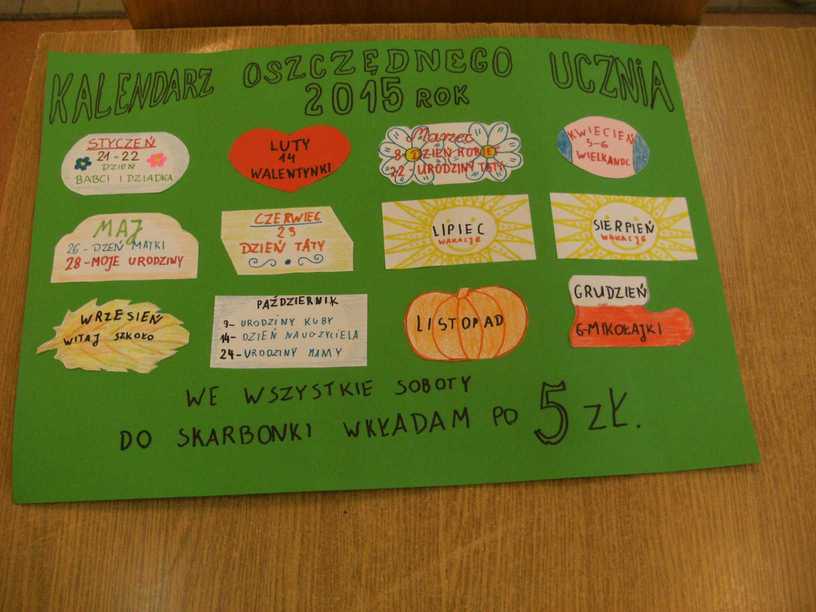 KALENDARZ OSZCZĘDNEGO UCZNIA
2015 ROK
STYCZEŃ
21-22
DZIEŃ
BABCI I DZIADKA
LUTY
14
WALENTYNKI
Marzec
8-DZIEŃ KOBIET
22-URODZINY TATY
KWIECIEŃ
5-6
WIELKANOC
MAJ
26-DZEŃ MATKI
28-MOJE URODZINY
CZERWIEC
23
DZIEŃ TATY
LIPIEC
WAKACJE
SIERPIEŃ
WAKACJE
WRZESIEŃ
WITAJ SZKOŁO
PAŹDZIERNIK
9-URODZINY KUBY
14-DZIEŃ NAUCZYCIELA
24-URODZINY MAMY
LISTOPAD
GRUDZIEŃ
6-MIKOŁAJKI
WE WSZYSTKIE SOBOTY
DO SKARBONKI WKŁADAM PO 5 ZŁ.